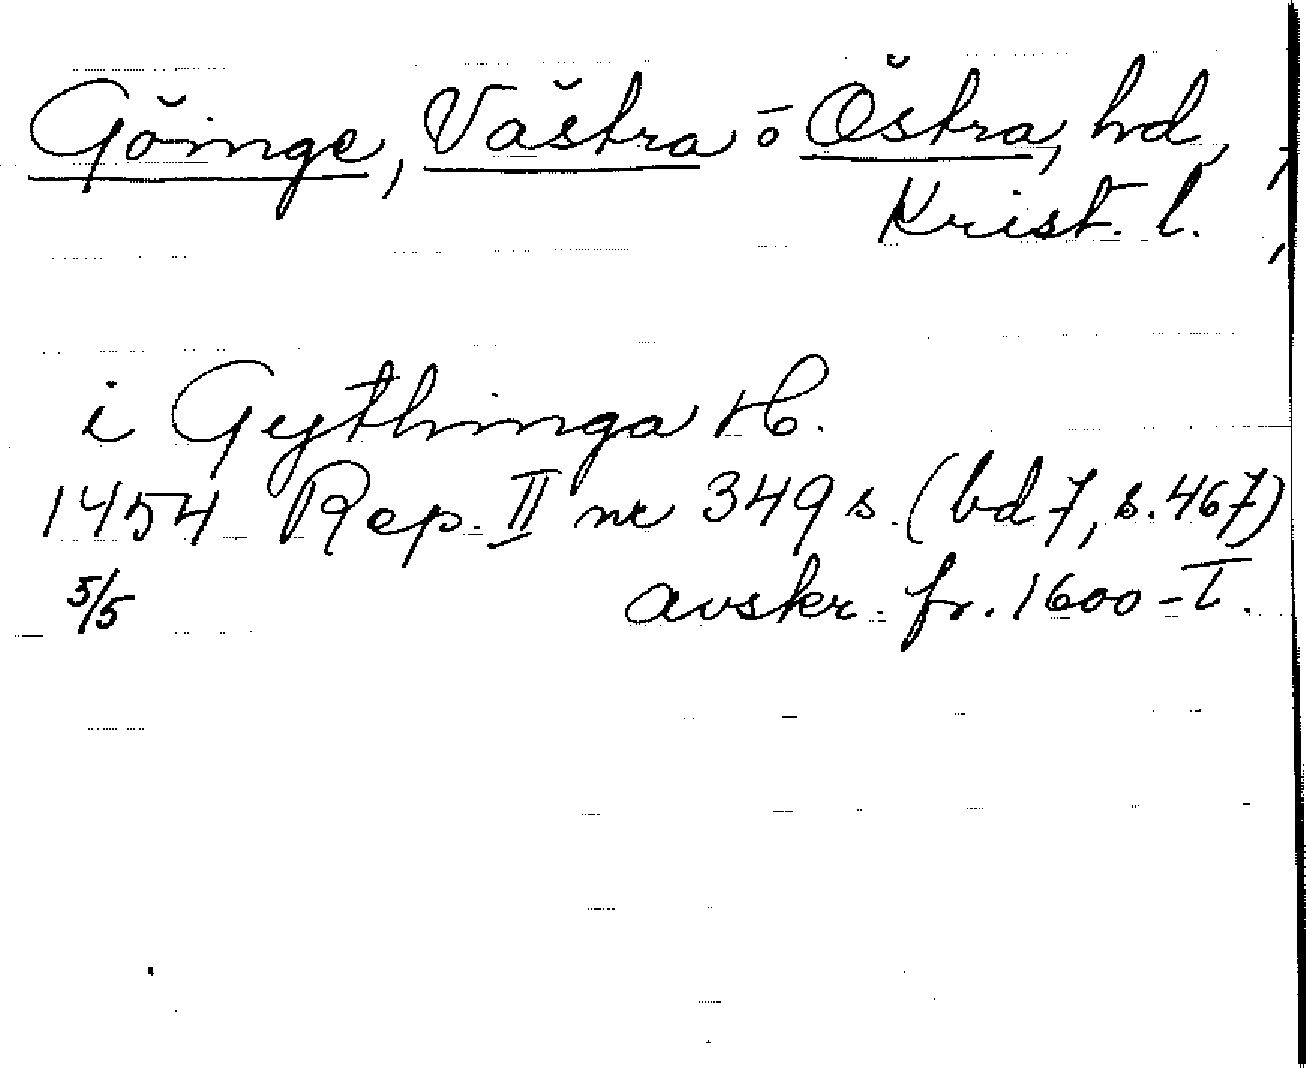 Göinge, Västra o Östra, hd,
Krist. l.
i Gythinga H.
1454 Rep. II nr 349 s. (bd 7, s. 467)
5/5 avskr. fr. 1600-t.